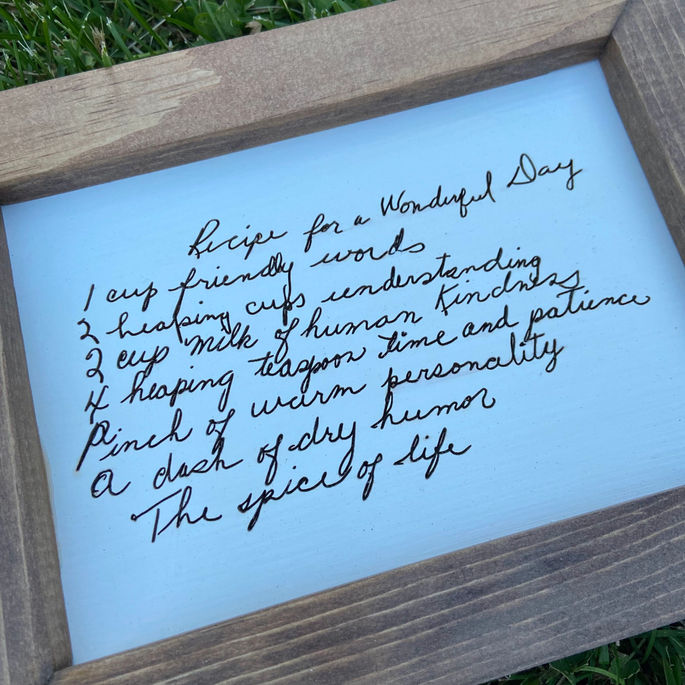 Recipe for a Wonderful Day
1 cup friendly words
2 heaping cups understanding
2 cup milk of human Kindness
4 heaping teaspoon time and patience
Pinch of warm personality
A dash of dry humor
The spice of life